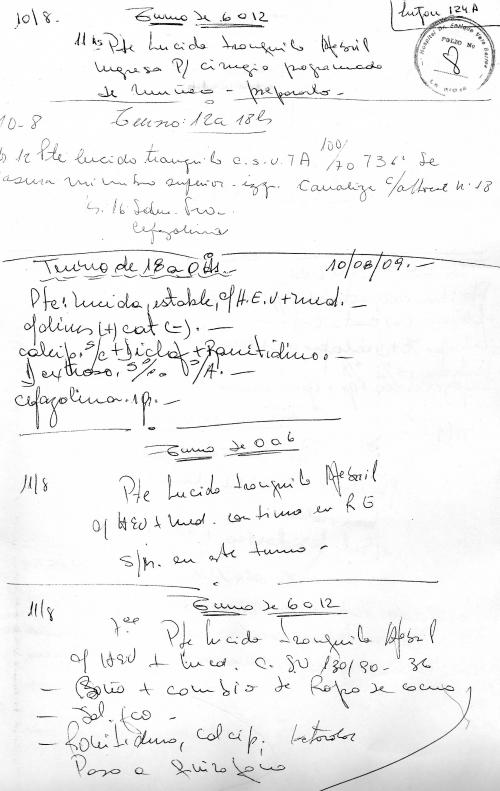 10/8. Turno de 6 a 12
124A
FOLIO No
8
11 hs Pte Lucido tranquilo Afebril
Ingresa P/ cirugia programada
de muñeca - preparado -
10-8 Turno: 12 a 18 hs
Pte lucido tranquilo c.s.v. TA 100/70 736° Se
miembro superior izq. Canaliza c/abbocat n: 18
16
Cefazolina
Turno de 18 a 0 hs. 10/08/09. -
Pte: Lucida, estable, c/H.E.V + med. -
(+) cat (-). -
calcip. s/c + Diclof + Ranitidina. -
Dextrosa. S/A. -
cefazolina. 1 gr. -
Turno de 0 a 6
11/8 Pte Lucido tranquilo Afebril
c/ HEV + med. continua en R E
S/p. en este turno -
11/8 Turno de 6 a 12
Pte Lucido tranquilo Afebril
c/ HEV + med. C. SV 130/90 - 36
- Baño + cambio de Ropa de cama
- Sol. fco -
- Ranitidina, calcip.
Pasa a Quirofano